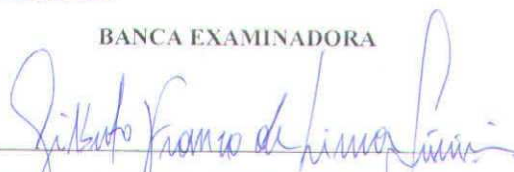 BANCA EXAMINADORA
Gilberto Franco de Lima Júnior